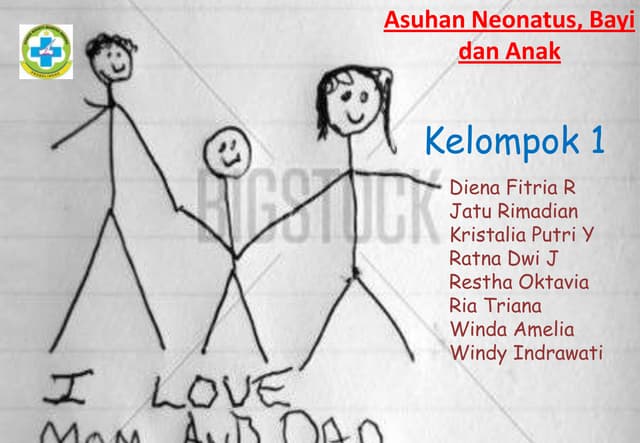 Asuhan Neonatus, Bayi
dan Anak
Kelompok 1
Diena Fitria R
Jatu Rimadian
Kristalia Putri Y
Ratna Dwi J
Restha Oktavia
Ria Triana
Winda Amelia
Windy Indrawati
BIGSTOCK
I LOVE
MOM AND DAD